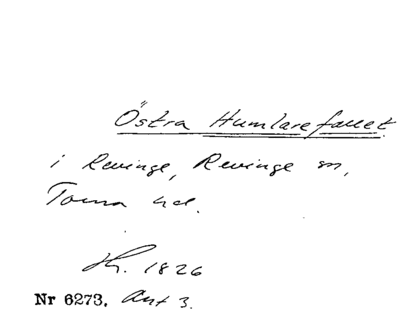 Östra Humlarefallet
i Revinge, Revinge sn,
Torna hd.
1826
Nr 6273. Akt 3.